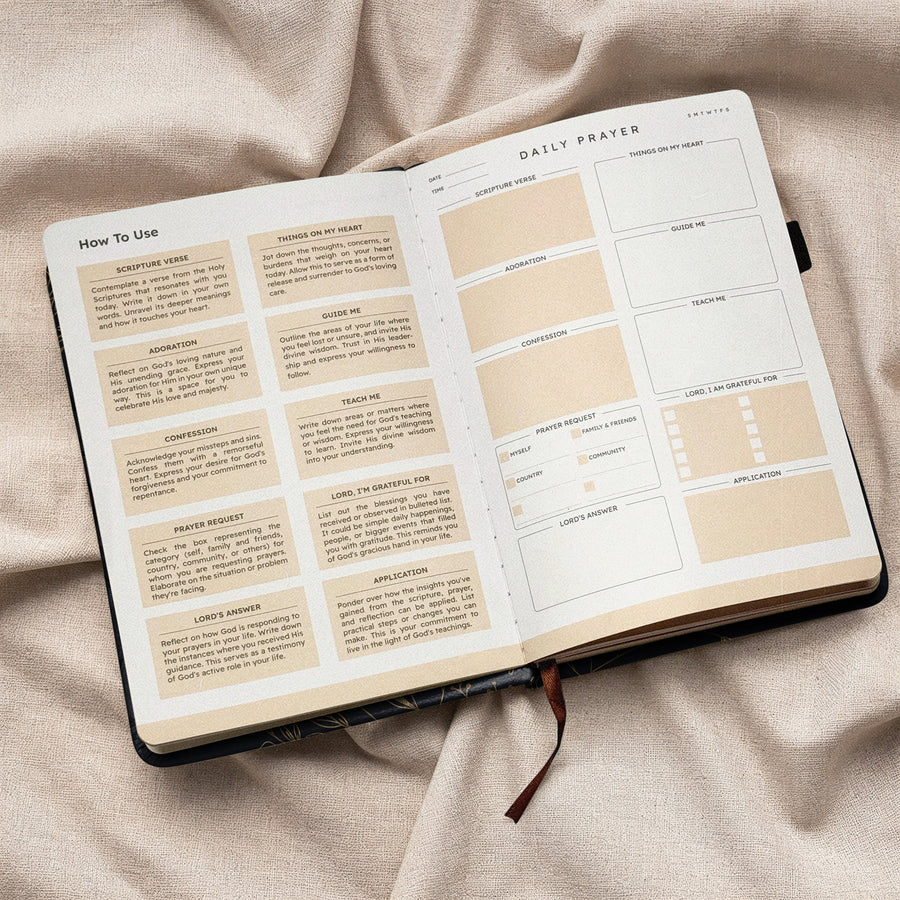 How To Use
SCRIPTURE VERSE
Contemplate a verse from the Holy
Scriptures that resonates with you
today. Write it down in your own
words. Unravel its deeper meanings
and how it touches your heart.
ADORATION
Reflect on God's loving nature and
His unending grace. Express your
adoration for Him in your own unique
way. This is a space for you to
celebrate His love and majesty.
CONFESSION
Acknowledge your missteps and sins.
Confess them with a remorseful
heart. Express your desire for God's
forgiveness and your commitment to
repentance.
PRAYER REQUEST
Check the box representing the
category (self, family and friends,
country, community, or others) for
whom you are requesting prayers.
Elaborate on the situation or problem
they're facing.
LORD'S ANSWER
Reflect on how God is responding to
your prayers in your life. Write down
the instances where you received His
guidance. This serves as a testimony
of God's active role in your life.
THINGS ON MY HEART
Jot down the thoughts, concerns, or
burdens that weigh on your heart
today. Allow this to serve as a form of
release and surrender to God's loving
care.
GUIDE ME
Outline the areas of your life where
you feel lost or unsure, and invite His
divine wisdom. Trust in His leader-
ship and express your willingness to
follow.
TEACH ME
Write down areas or matters where
you feel the need for God's teaching
or wisdom. Express your willingness
to learn. Invite His divine wisdom
into your understanding.
LORD, I'M GRATEFUL FOR
List out the blessings you have
received or observed in bulleted list.
It could be simple daily happenings,
people, or bigger events that filled
you with gratitude. This reminds you
of God's gracious hand in your life.
APPLICATION
Ponder over how the insights you've
gained from the scripture, prayer,
and reflection can be applied. List
practical steps or changes you can
make. This is your commitment to
live in the light of God's teachings.
DAILY PRAYER
S M T W T F S
DATE
TIME
SCRIPTURE VERSE
ADORATION
CONFESSION
PRAYER REQUEST
MYSELF
FAMILY & FRIENDS
COUNTRY
COMMUNITY
LORD'S ANSWER
THINGS ON MY HEART
GUIDE ME
TEACH ME
LORD, I AM GRATEFUL FOR
APPLICATION